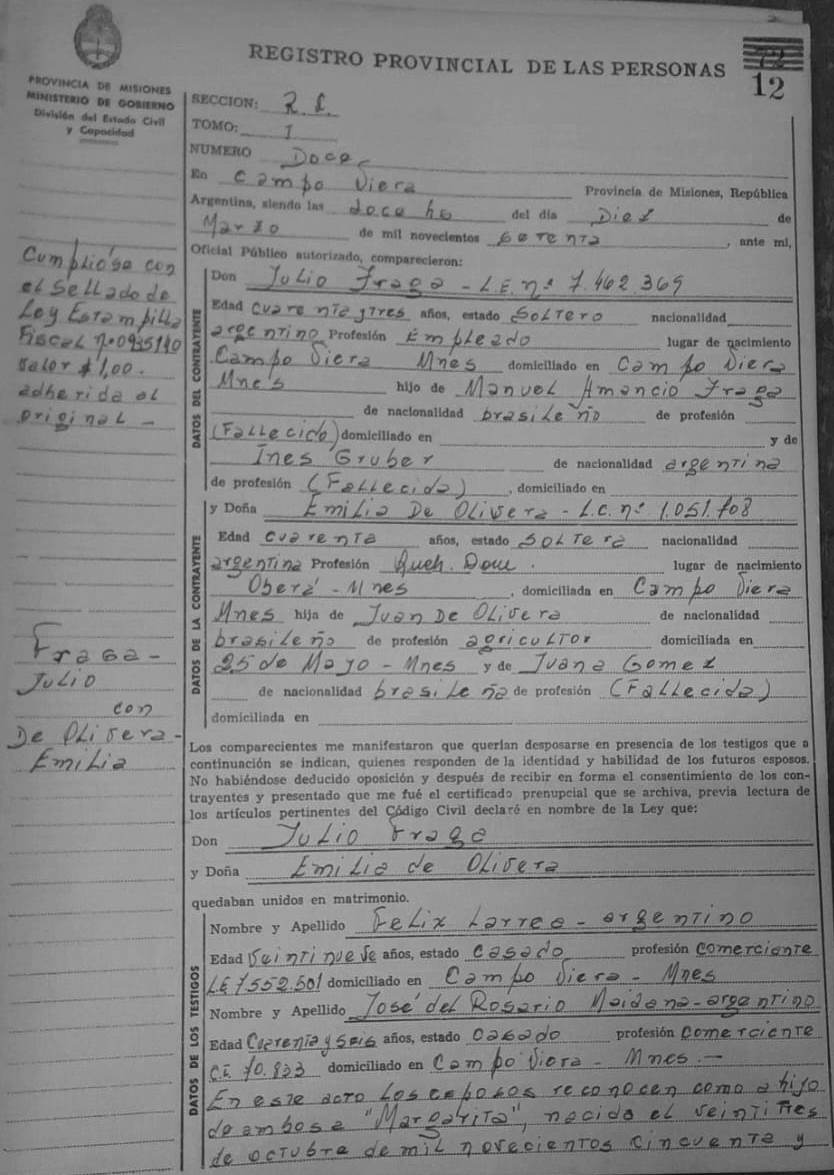 REGISTRO PROVINCIAL DE LAS PERSONAS
72
12
PROVINCIA DE MISIONES
MINISTERIO DE GOBIERNO
División del Estado Civil
y Capacidad
SECCION: R. C.
TOMO: I
NUMERO Doce
En Campo Viera Provincia de Misiones, República
Argentina, siendo las doce hs del día Diez de
Marzo de mil novecientos setenta, ante mi,
Oficial Público autorizado, comparecieron:
Cumplióse con
el Sellado de
Ley Estampilla
Fiscal nº0935110
valor $1,00.
adherida al
original -
DATOS DEL CONTRAYENTE
Don Julio Fraga - L.E. nº 7.462.369
Edad cuarenta y tres años, estado Soltero nacionalidad
argentino Profesión Empleado lugar de nacimiento
Campo Viera Mnes domiciliado en Campo Viera
Mnes hijo de Manuel Amancio Fraga
de nacionalidad brasileño de profesión
(Fallecido) domiciliado en y de
Ines Gruber de nacionalidad argentina
de profesión (Fallecida), domiciliado en
DATOS DE LA CONTRAYENTE
y Doña Emilia De Olivera - L.C. nº 1.051.708
Edad cuarenta años, estado Soltera nacionalidad
argentina Profesión Queh. Dom. lugar de nacimiento
Oberá - Mnes, domiciliada en Campo Viera
Mnes hija de Juan De Olivera de nacionalidad
brasileño de profesión agricultor domiciliado en
25 de Mayo - Mnes y de Juana Gomez
de nacionalidad brasileña de profesión (Fallecida)
domiciliada en
Fraga -
Julio
con
De Olivera -
Emilia
Los comparecientes me manifestaron que querían desposarse en presencia de los testigos que a
continuación se indican, quienes responden de la identidad y habilidad de los futuros esposos.
No habiéndose deducido oposición y después de recibir en forma el consentimiento de los con-
trayentes y presentado que me fué el certificado prenupcial que se archiva, previa lectura de
los artículos pertinentes del Código Civil declaré en nombre de la Ley que:
Don Julio Fraga
y Doña Emilia de Olivera
quedaban unidos en matrimonio.
DATOS DE LOS TESTIGOS
Nombre y Apellido Felix Larrea - argentino
Edad Veintinueve años, estado casado profesión comerciante
LE 7552.501 domiciliado en Campo Viera - Mnes
Nombre y Apellido José del Rosario Maidana - argentino
Edad Cuarenta y seis años, estado casado profesión comerciante
CI 70.823 domiciliado en Campo Viera - Mnes. -
En este acto los esposos reconocen como a hijo
de ambos a "Margarita", nacida el veintitres
de octubre de mil novecientos cincuenta y